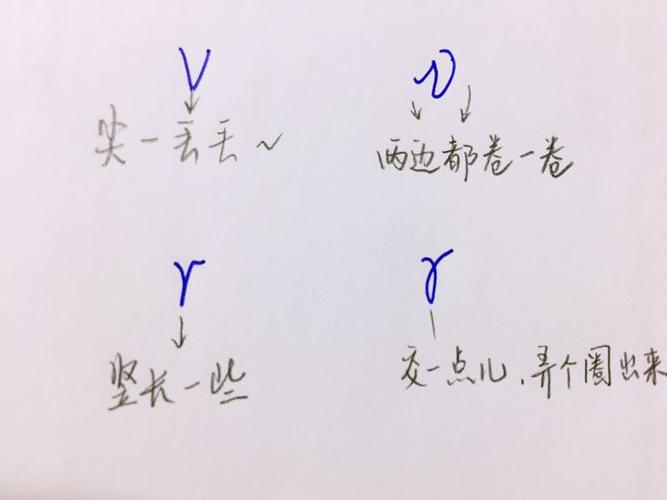 v υ
尖一丢丢~ 两边都卷一卷
r γ
竖长一些 交一点儿,弄个圈出来